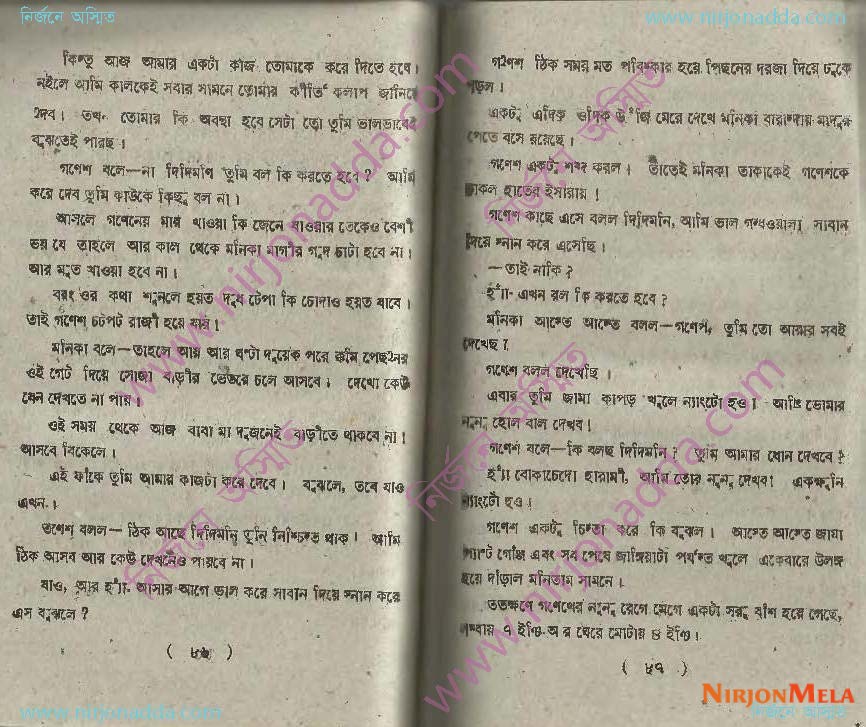 নির্জনে অস্মিত
www.nirjonadda.com
কিন্তু আজ আমার একটা কাজ তোমাকে করে দিতে হবে।
নইলে আমি কালকেই সবার সামনে তোমার কীর্তি কলাপ জানিয়ে
দেব। তখন তোমার কি অবস্থা হবে সেটা তো তুমি ভালভাবেই
বুঝতেই পারছ।
গণেশ বলে—না দিদিমণি তুমি বল কি করতে হবে? আমি
করে দেব তুমি কাউকে কিছু বল না।
আসলে গণেশের মার খাওয়া কি জেনে যাওয়ার থেকেও বেশী
ভয় যে তাহলে আর কাল থেকে মনিকা মাগীর গুদ চাটা হবে না।
আর মুত খাওয়া হবে না।
বরং ওর কথা শুনলে হয়ত দুধ টেপা কি চোদাও হয়ত যাবে।
তাই গণেশ চটপট রাজী হয়ে যায়।
মনিকা বলে—তাহলে আয় আর ঘণ্টা দুয়েক পরে তুমি পেছনের
ওই গেট দিয়ে সোজা বাড়ীর ভেতরে চলে আসবে। দেখো কেউ
যেন দেখতে না পায়।
ওই সময় থেকে আজ বাবা মা দুজনেই বাড়ীতে থাকবে না।
আসবে বিকেলে।
এই ফাঁকে তুমি আমার কাজটা করে দেবে। বুঝলে, তবে যাও
এখন।
গণেশ বলল—ঠিক আছে দিদিমনি তুমি নিশ্চিন্ত থাক। আমি
ঠিক আসব আর কেউ দেখতেও পারবে না।
যাও, আর হ্যাঁ আসার আগে ভাল করে সাবান দিয়ে স্নান করে
এস বুঝলে?
( ৮৬ )
গণেশ ঠিক সময় মত পরিষ্কার হয়ে পিছনের দরজা দিয়ে ঢুকে
পড়ল।
একটু এদিক ওদিক উঁকি মেরে দেখে মনিকা বারান্দায় মাদুর
পেতে বসে রয়েছে।
গণেশ একটু শব্দ করল। তাতেই মনিকা তাকাকেই গণেশকে
ডাকল হাতের ইসারায়।
গণেশ কাছে এসে বলল দিদিমনি, আমি ভাল গন্ধওয়ালা সাবান
দিয়ে স্নান করে এসেছি।
—তাই নাকি?
হ্যাঁ—এখন বল কি করতে হবে?
মনিকা আস্তে আস্তে বলল—গণেশ, তুমি তো আমার সবই
দেখেছ?
গণেশ বলল দেখেছি।
এবার তুমি জামা কাপড় খুলে ন্যাংটো হও। আমি তোমার
নুনু হোল বাল দেখব।
গণেশ বলে—কি বলছ দিদিমনি? তুমি আমার ধোন দেখবে?
হ্যাঁ বোকাচোদা হারামী, আমি তোর নুনু দেখব। এক্ষুনি
ন্যাংটো হও।
গণেশ একটু চিন্তা করে কি বুঝল। আস্তে আস্তে জামা
প্যান্ট গেঞ্জি এবং সব শেষে জাঙ্গিয়াটা পর্যন্ত খুলে একেবারে উলঙ্গ
হয়ে দাঁড়াল মনিকার সামনে।
ততক্ষণে গণেশের নুনু রেগে মেগে একটা সরু বাঁশ হয়ে গেছে,
লম্বায় ৭ ইঞ্চি আর ঘেরে মোটায় ৪ ইঞ্চি।
( ৮৭ )
www.nirjonadda.com
NIRJONMELA
নির্জনে অস্মিত